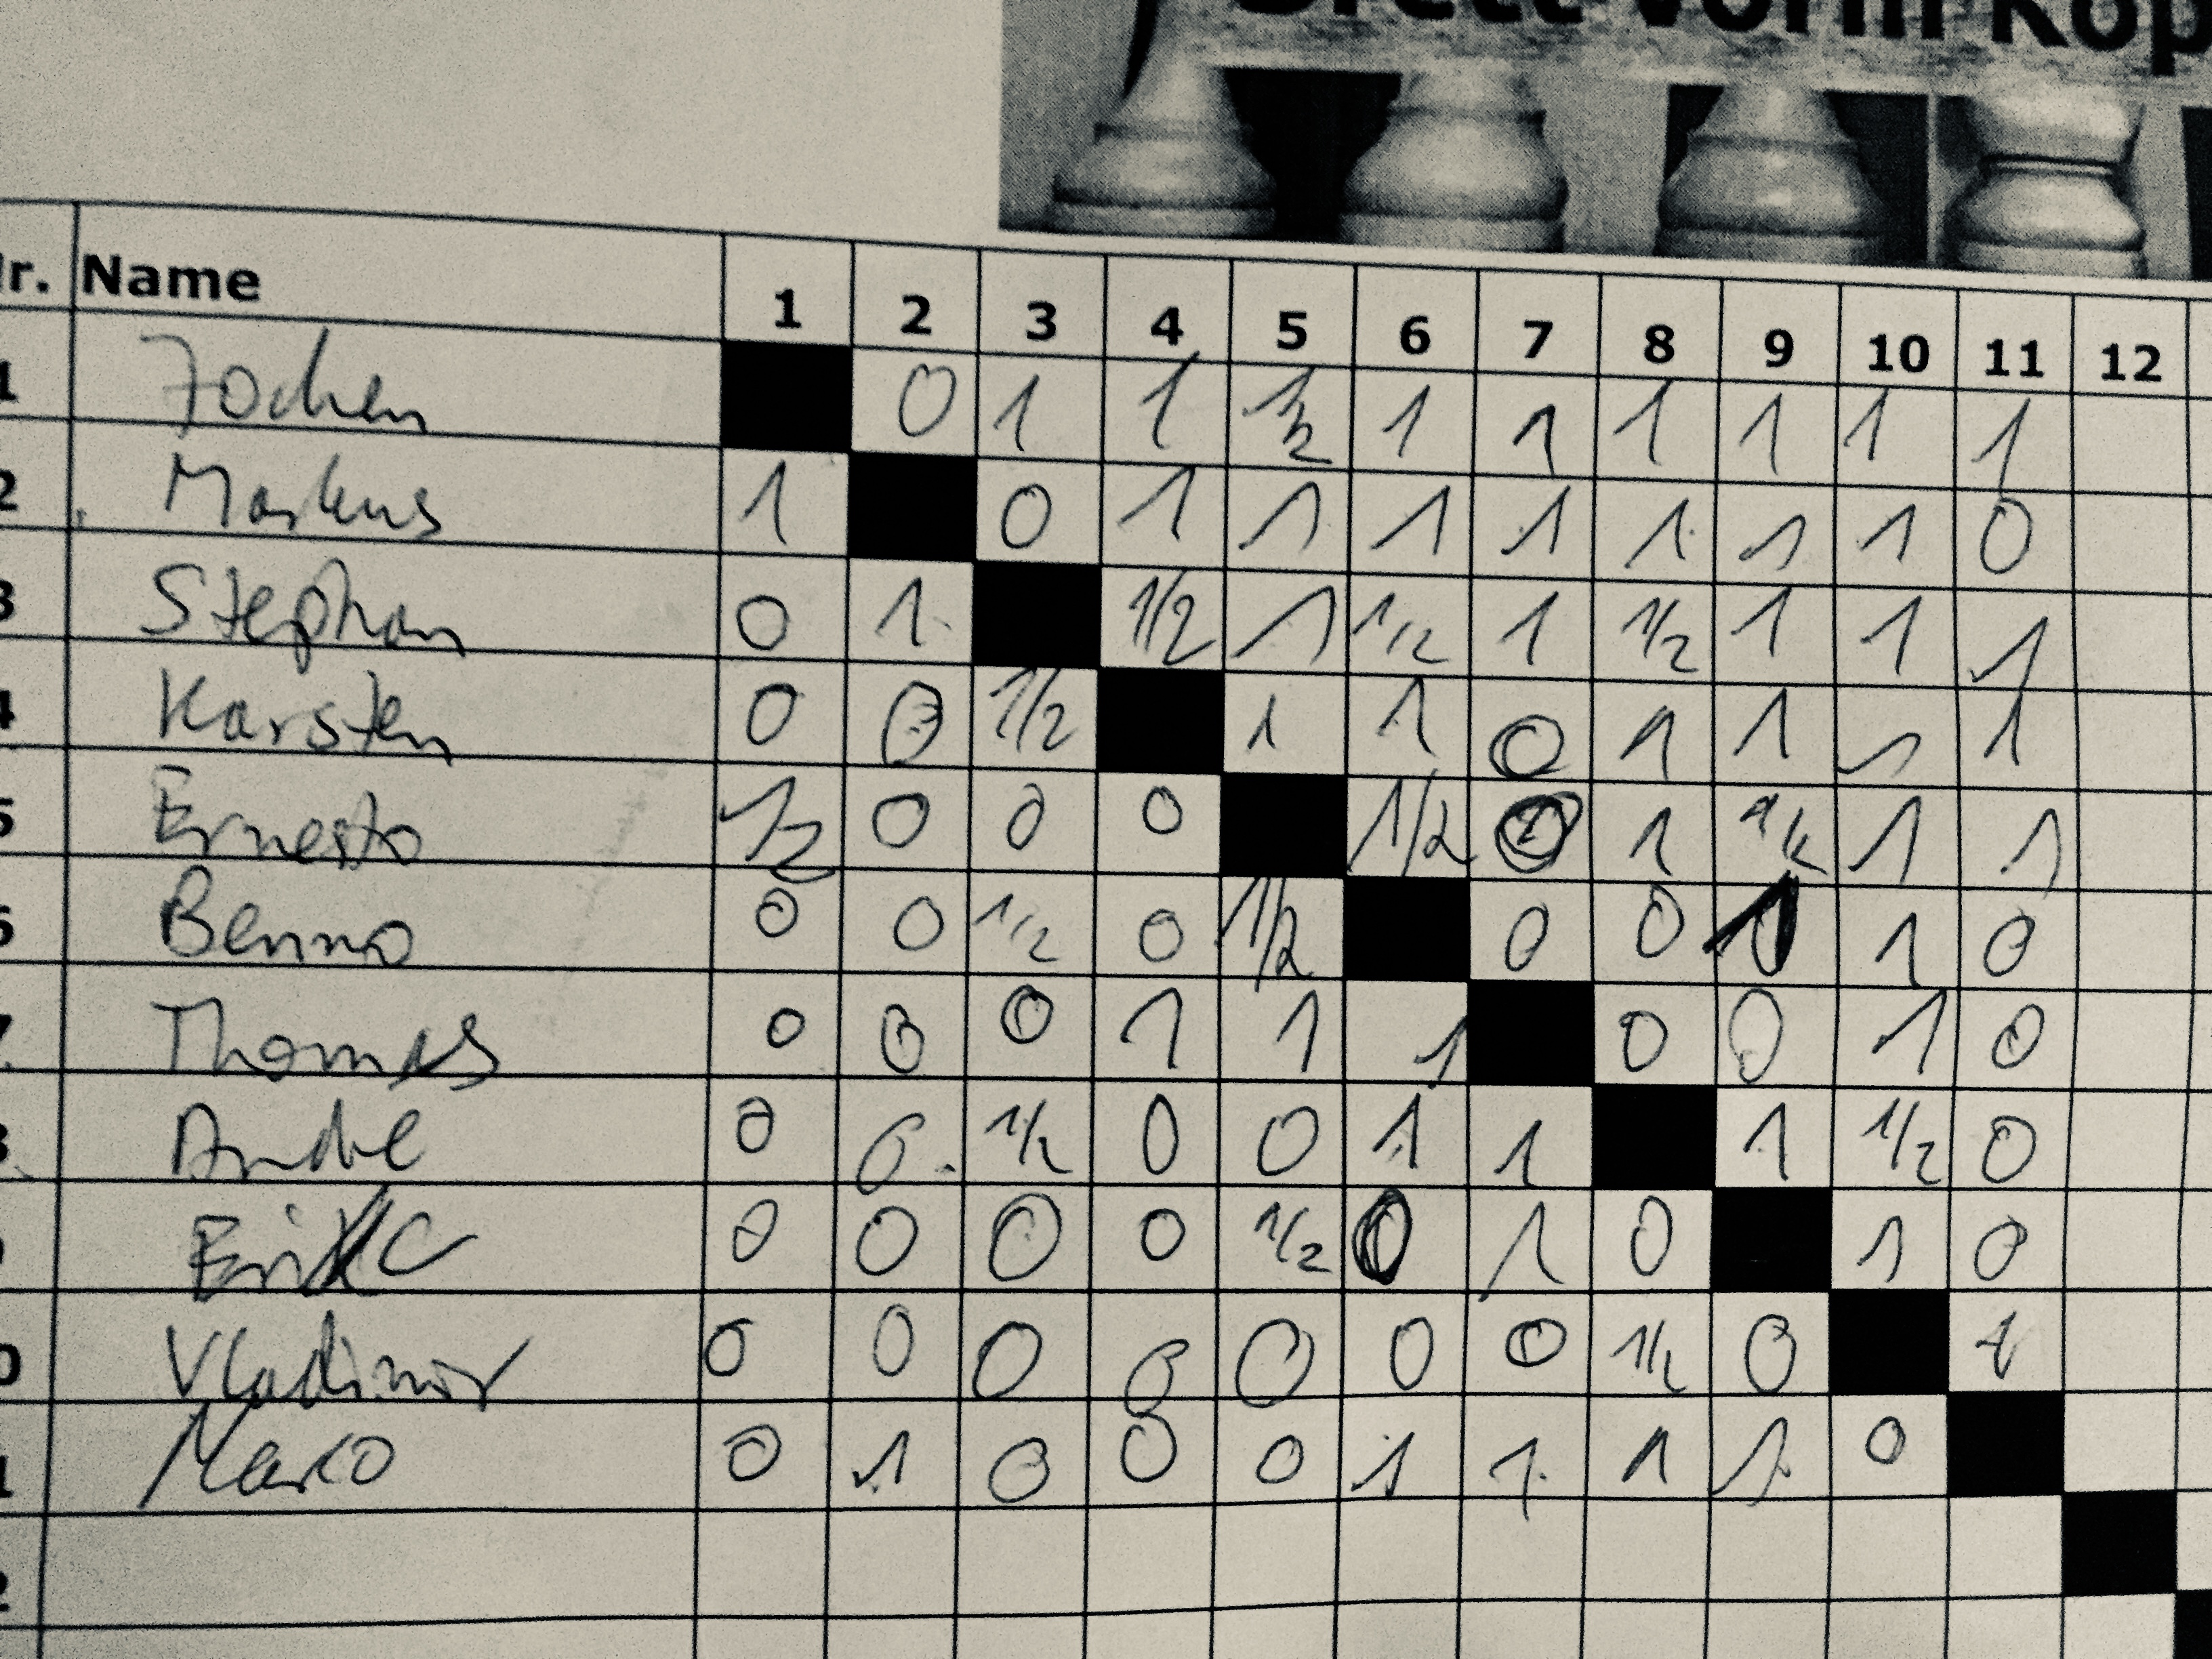 Brett vorm Kop
Nr. Name 1 2 3 4 5 6 7 8 9 10 11 12
1 Jochen 0 1 1 ½ 1 1 1 1 1 1
2 Markus 1 0 1 1 1 1 1 1 1 0
3 Stephan 0 1 1/2 1 1/2 1 1/2 1 1 1
4 Karsten 0 0 1/2 1 1 0 1 1 1 1
5 Ernesto 1/2 0 0 0 1/2 0 1 1/2 1 1
6 Benno 0 0 1/2 0 1/2 0 0 1 1 0
7 Thomas 0 0 0 1 1 1 0 0 1 0
8 André 0 0 1/2 0 0 1 1 1 1/2 0
Eric 0 0 0 0 1/2 0 1 0 1 0
0 Vladimir 0 0 0 0 0 0 0 1/2 0 1
1 Marco 0 1 0 0 0 1 1 1 1 0
2